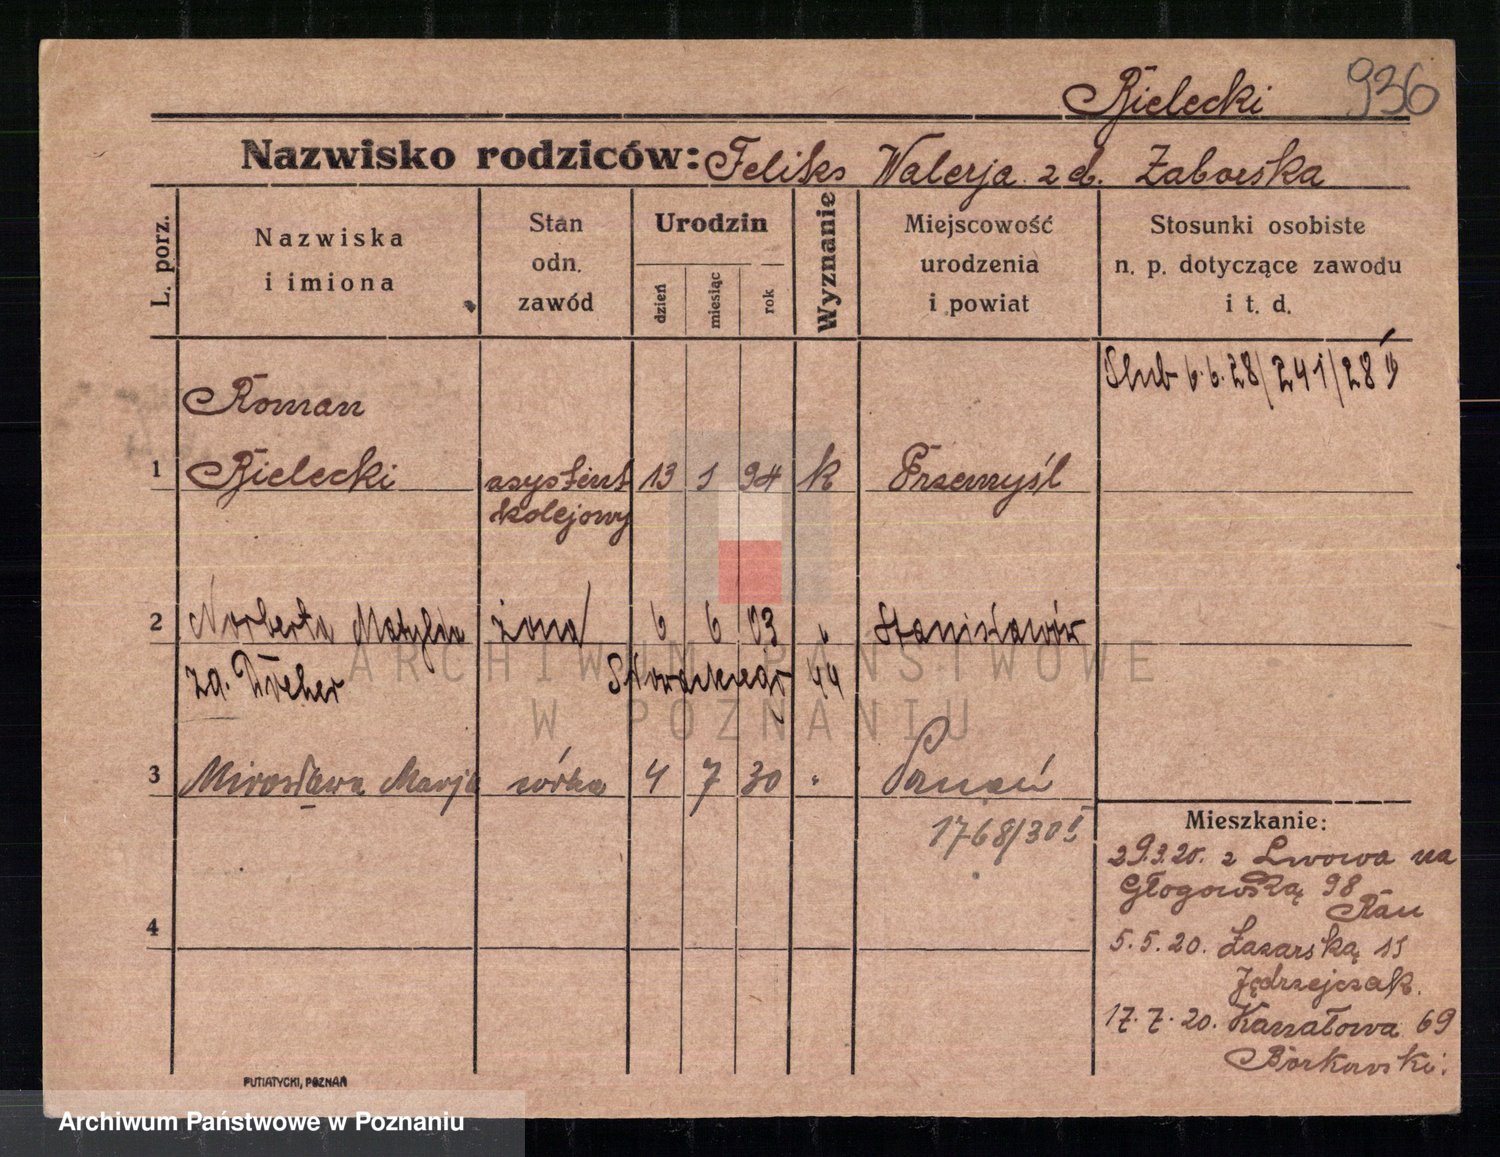 Bielecki 936
Nazwisko rodziców: Feliks Walerja z d. Zaborska
L. porz.
Nazwiska
i imiona
Stan
odn.
zawód
Urodzin
dzień
miesiąc
rok
Wyznanie
Miejscowość
urodzenia
i powiat
Stosunki osobiste
n. p. dotyczące zawodu
i t. d.
Ślub 6.6.28/241/28
Roman
1 Bielecki asystent 13 1 94 k Przemyśl
kolejowy
2 Norberta Matylda żona 6 6 03 " Stanisławów
zd. Dreher 44
3 Mirosława Marja córka 4 7 30 " Poznań
1768/30 I
4
Mieszkanie:
29.3.20. z Lwowa na
Głogowską 98
Rau
5.5.20. Łazarską 11
Jędrzejczak.
17.7.20. Kanałowa 69
Borkowski.
PUTIATYCKI, POZNAŃ
ARCHIWUM PAŃSTWOWE
W POZNANIU
Archiwum Państwowe w Poznaniu